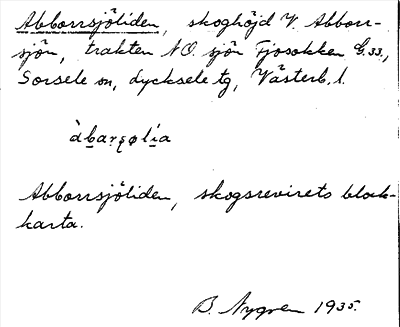 Abborrsjöliden, skoghöjd V. Abborr-
sjön, trakten NO. sjön Fjosokken G. 33.,
Sorsele sn, Lycksele tg, Västerb. l.
àbarʂølia
Abborrsjöliden, skogsrevirets block-
karta.
B. Nygren 1935.